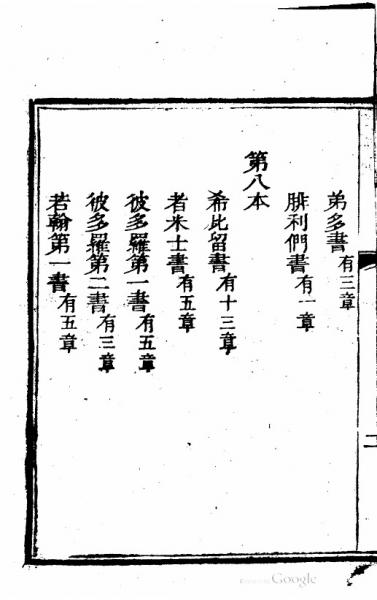 弟多書有三章
腓利們書有一章
第八本
希比留書有十三章
者米士書有五章
彼多羅第一書有五章
彼多羅第二書有三章
若翰第一書有五章
二
Google